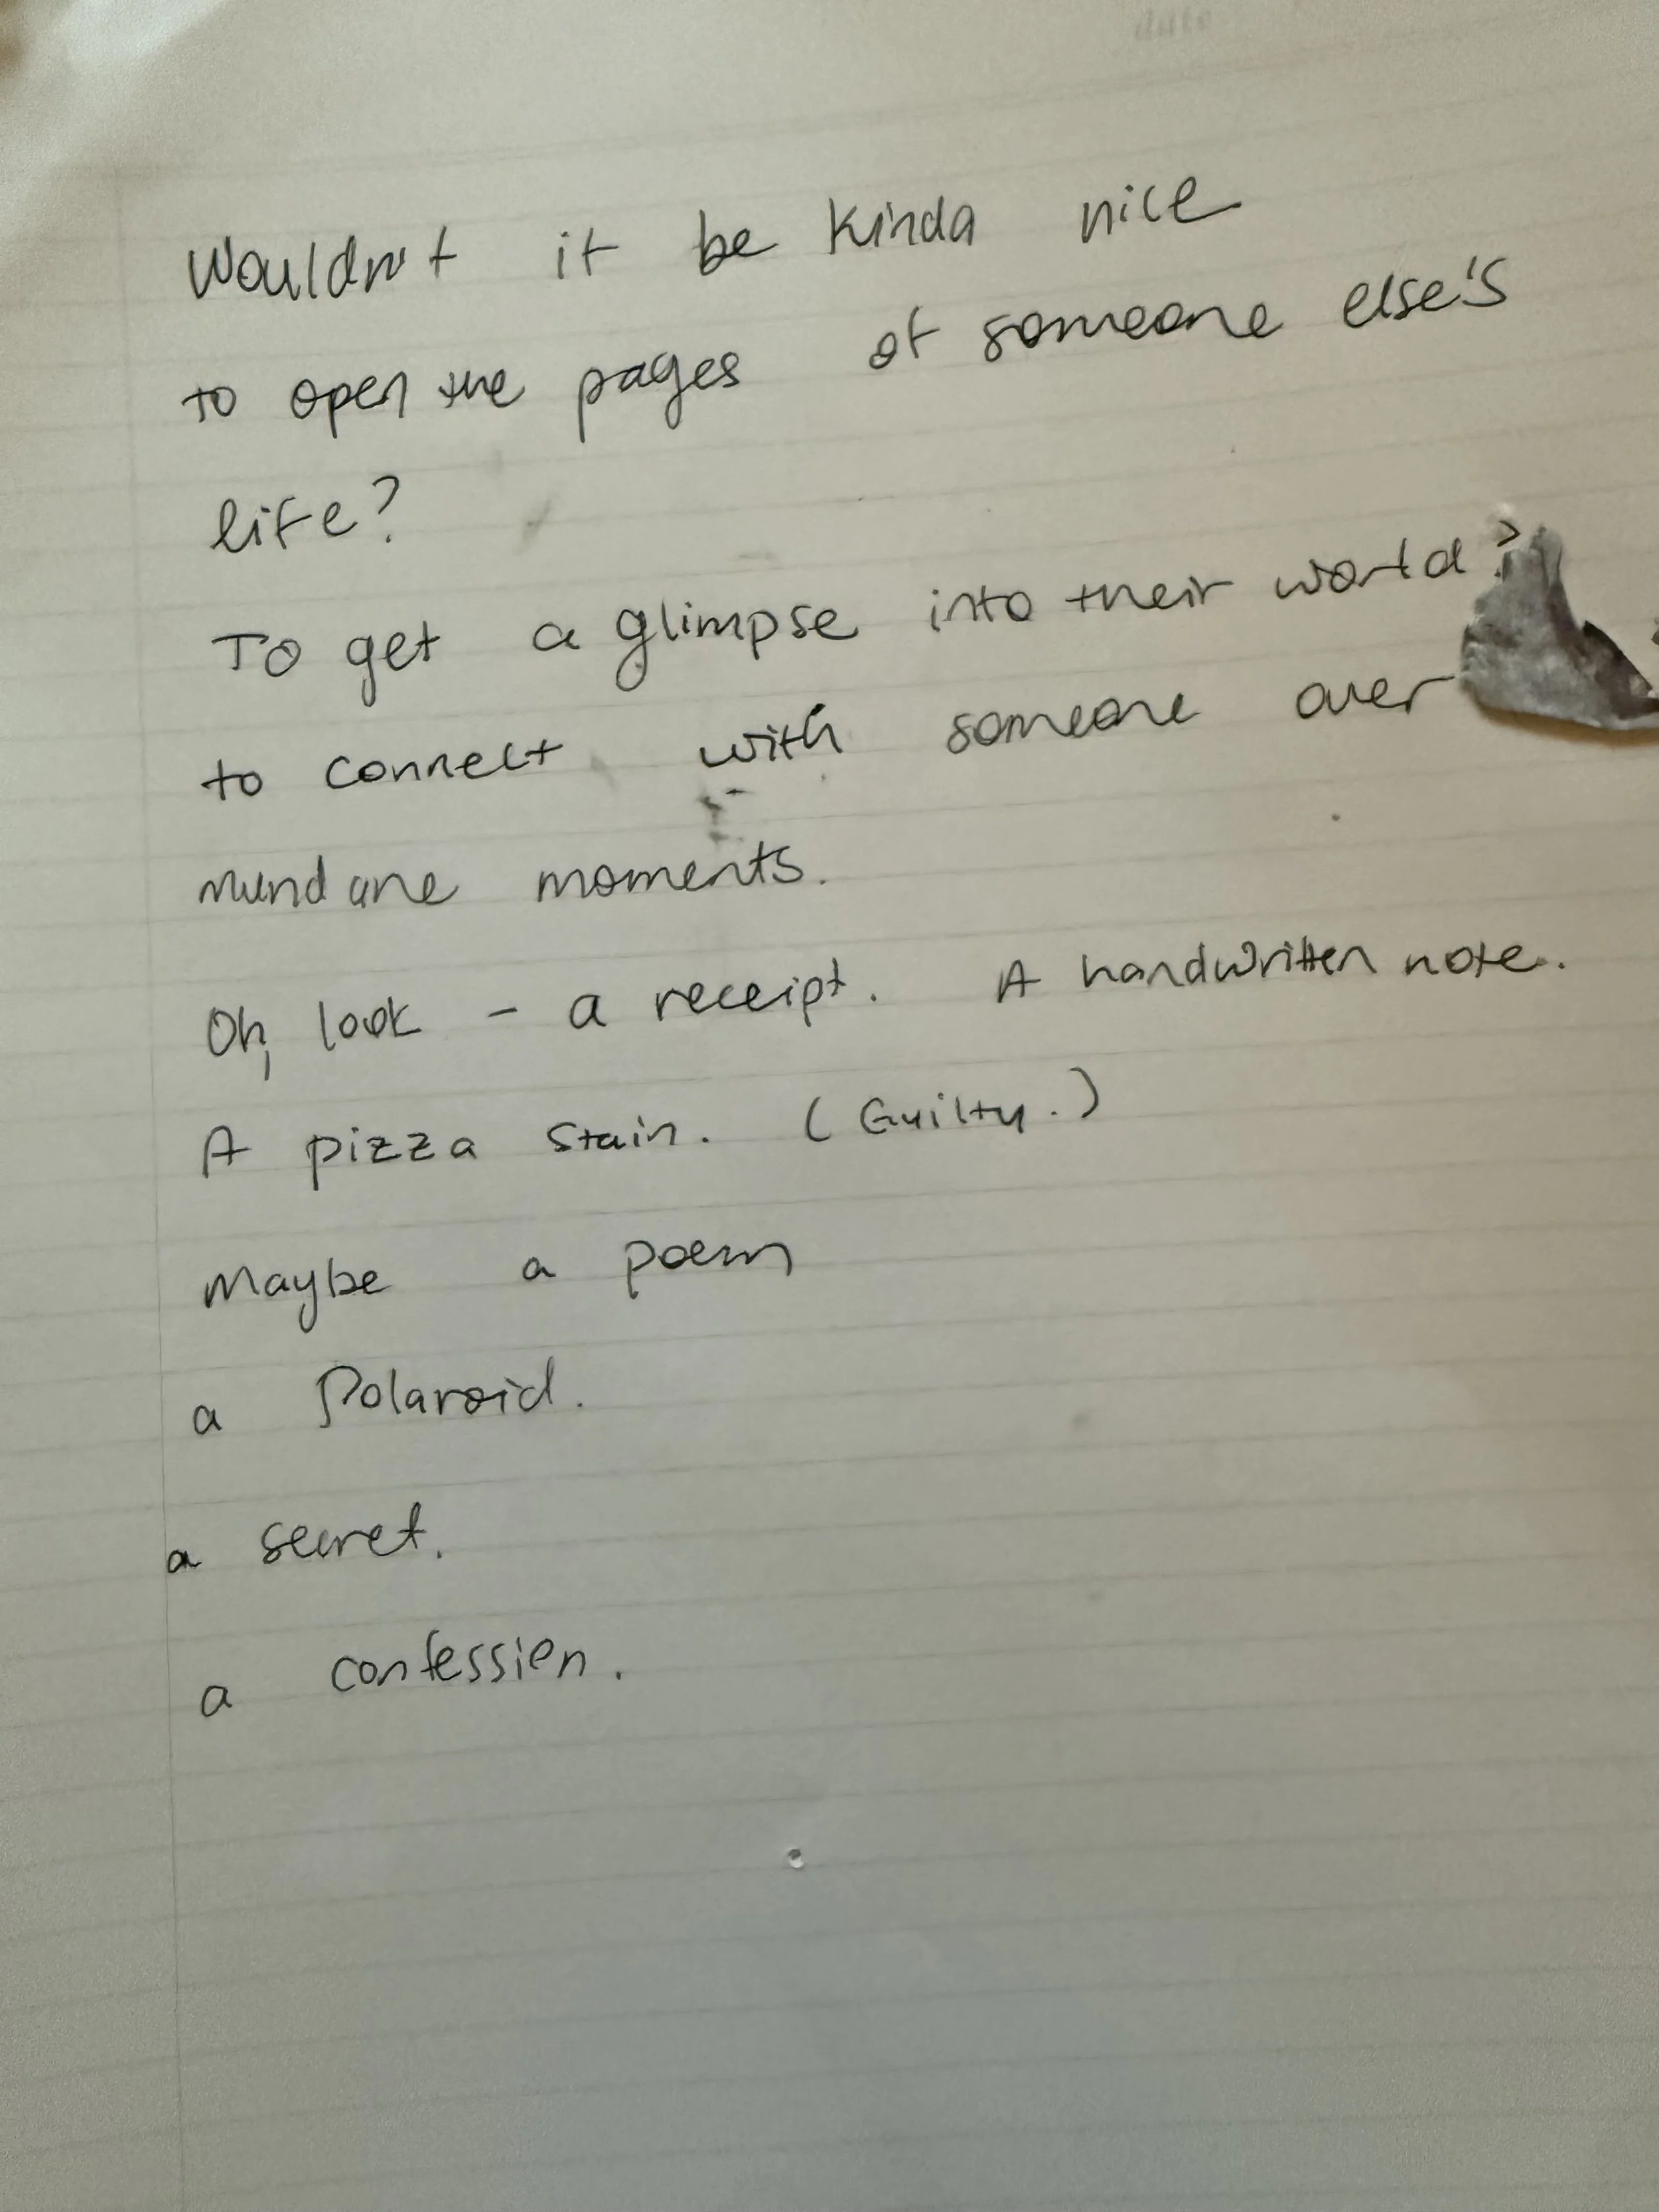 date
Wouldn't it be kinda nice
to open the pages of someone else's
life?
To get a glimpse into their world?
to connect with someone over
mundane moments.
Oh, look - a receipt. A handwritten note.
A pizza stain. (Guilty.)
Maybe a poem
a Polaroid.
a secret.
a confession.